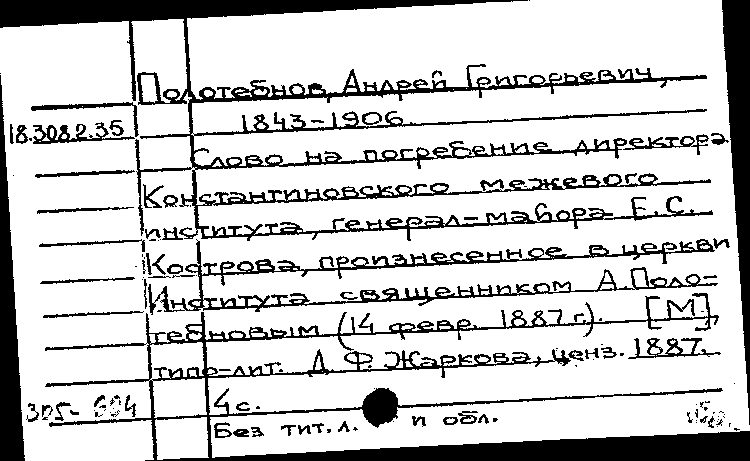 Полотебнов, Андрей Григорьевич,
18.308.2.35 1843-1906.
Слово на погребение директора
Константиновского межевого
института, генерал-майора Е.С.
Кострова, произнесенное в церкви
Института священником А.Поло-
тебновым (14 февр. 1887 г.). [М],
типо-лит. Д. Ф. Жаркова, ценз. 1887.
4 с.
Без тит. л. и обл.